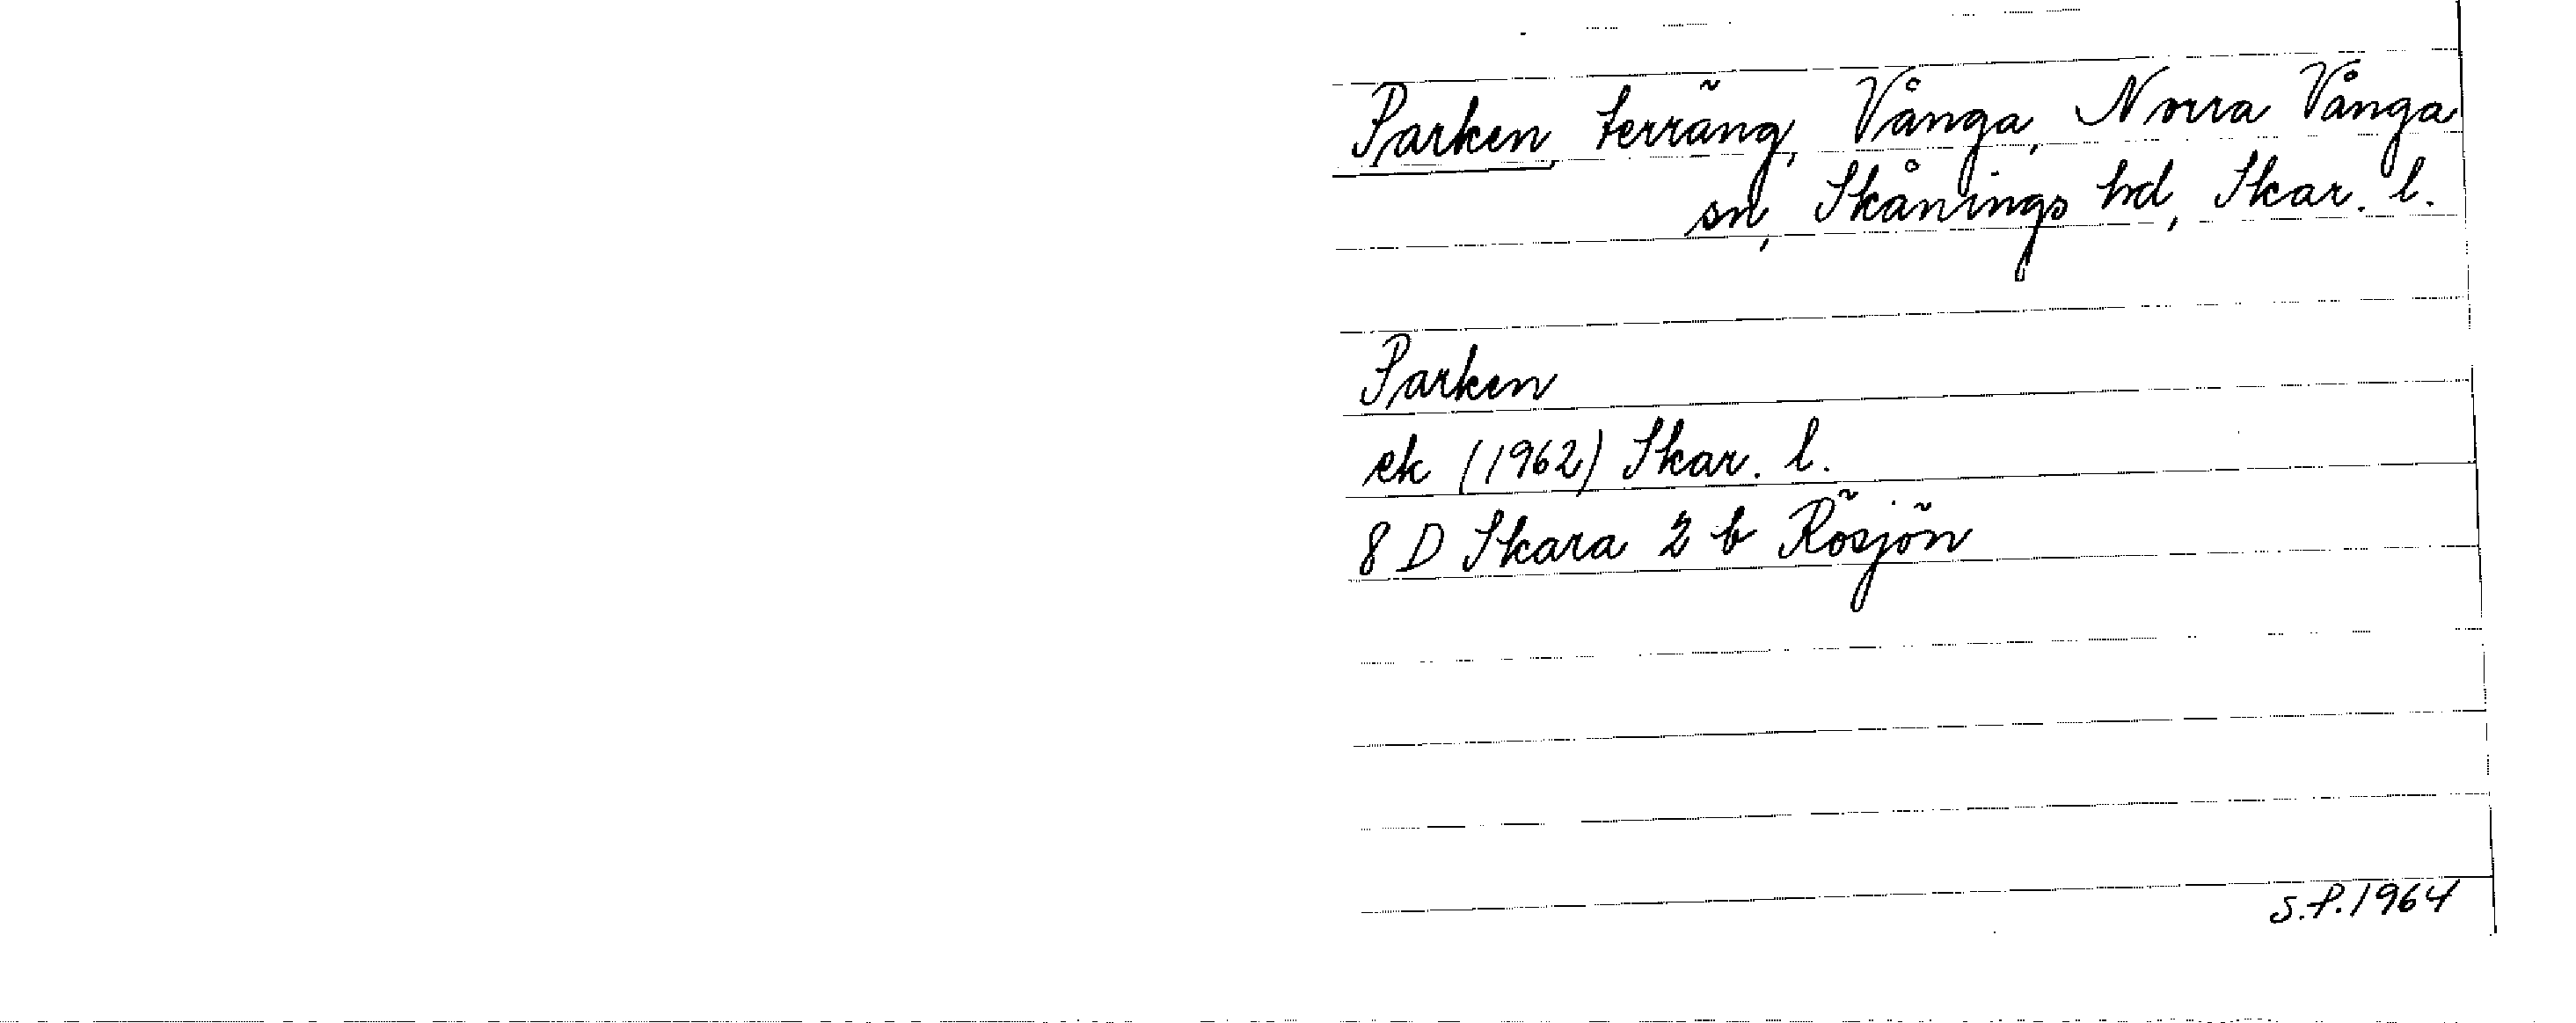 Parken, terräng, Vånga, Norra Vånga
sn, Skånings hd, Skar. l.
Parken
ek (1962) Skar. l.
8 D Skara 2 b Rösjön
S.P. 1964